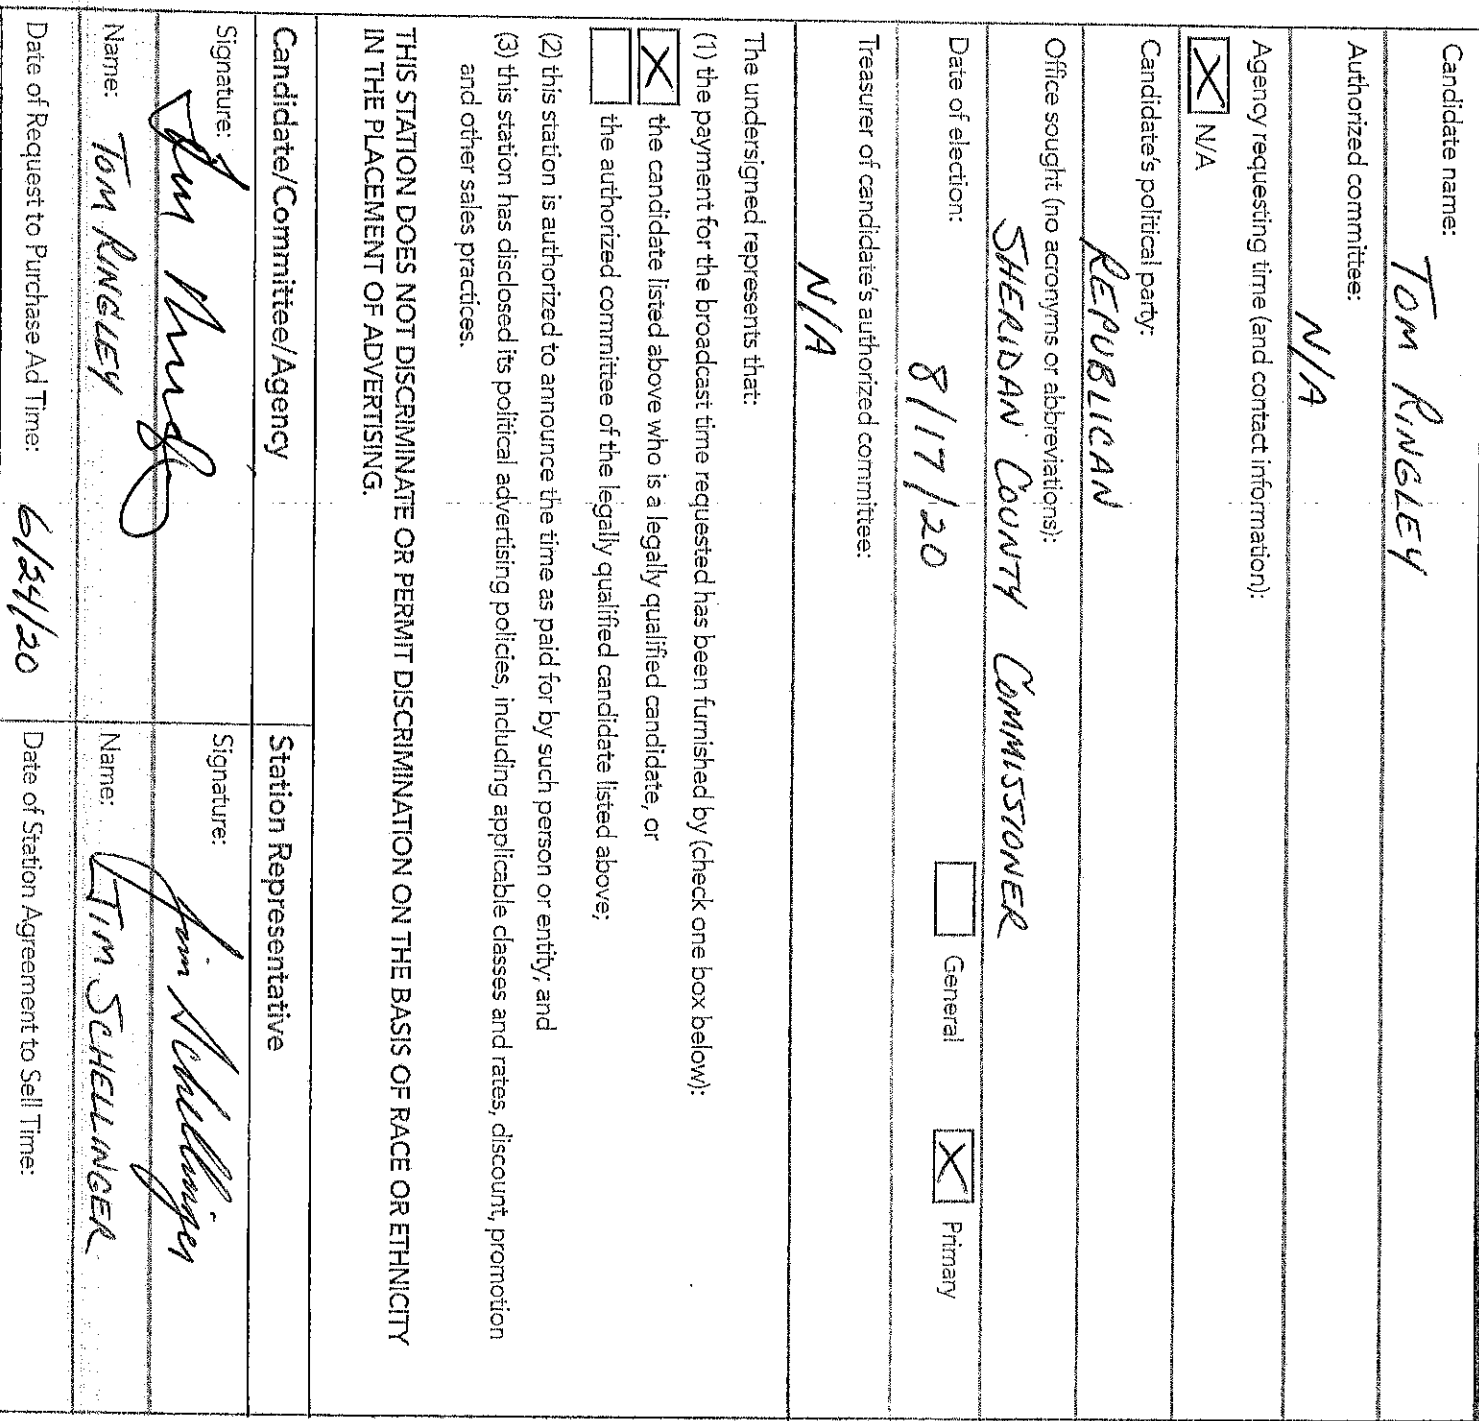 Candidate name:
TOM RINGLEY
Authorized committee:
N/A
Agency requesting time (and contact information):
N/A
Candidate's political party:
REPUBLICAN
Office sought (no acronyms or abbreviations):
SHERIDAN COUNTY COMMISSIONER
Date of election:
8/17/20
General
Primary
Treasurer of candidate's authorized committee:
N/A
The undersigned represents that:
(1) the payment for the broadcast time requested has been furnished by (check one box below):
the candidate listed above who is a legally qualified candidate, or
the authorized committee of the legally qualified candidate listed above;
(2) this station is authorized to announce the time as paid for by such person or entity; and
(3) this station has disclosed its political advertising policies, including applicable classes and rates, discount, promotion
and other sales practices.
THIS STATION DOES NOT DISCRIMINATE OR PERMIT DISCRIMINATION ON THE BASIS OF RACE OR ETHNICITY
IN THE PLACEMENT OF ADVERTISING.
Candidate/Committee/Agency
Signature:
Name: TOM RINGLEY
Date of Request to Purchase Ad Time: 6/24/20
Station Representative
Signature: Jim Schellinger
Name: JIM SCHELLINGER
Date of Station Agreement to Sell Time: